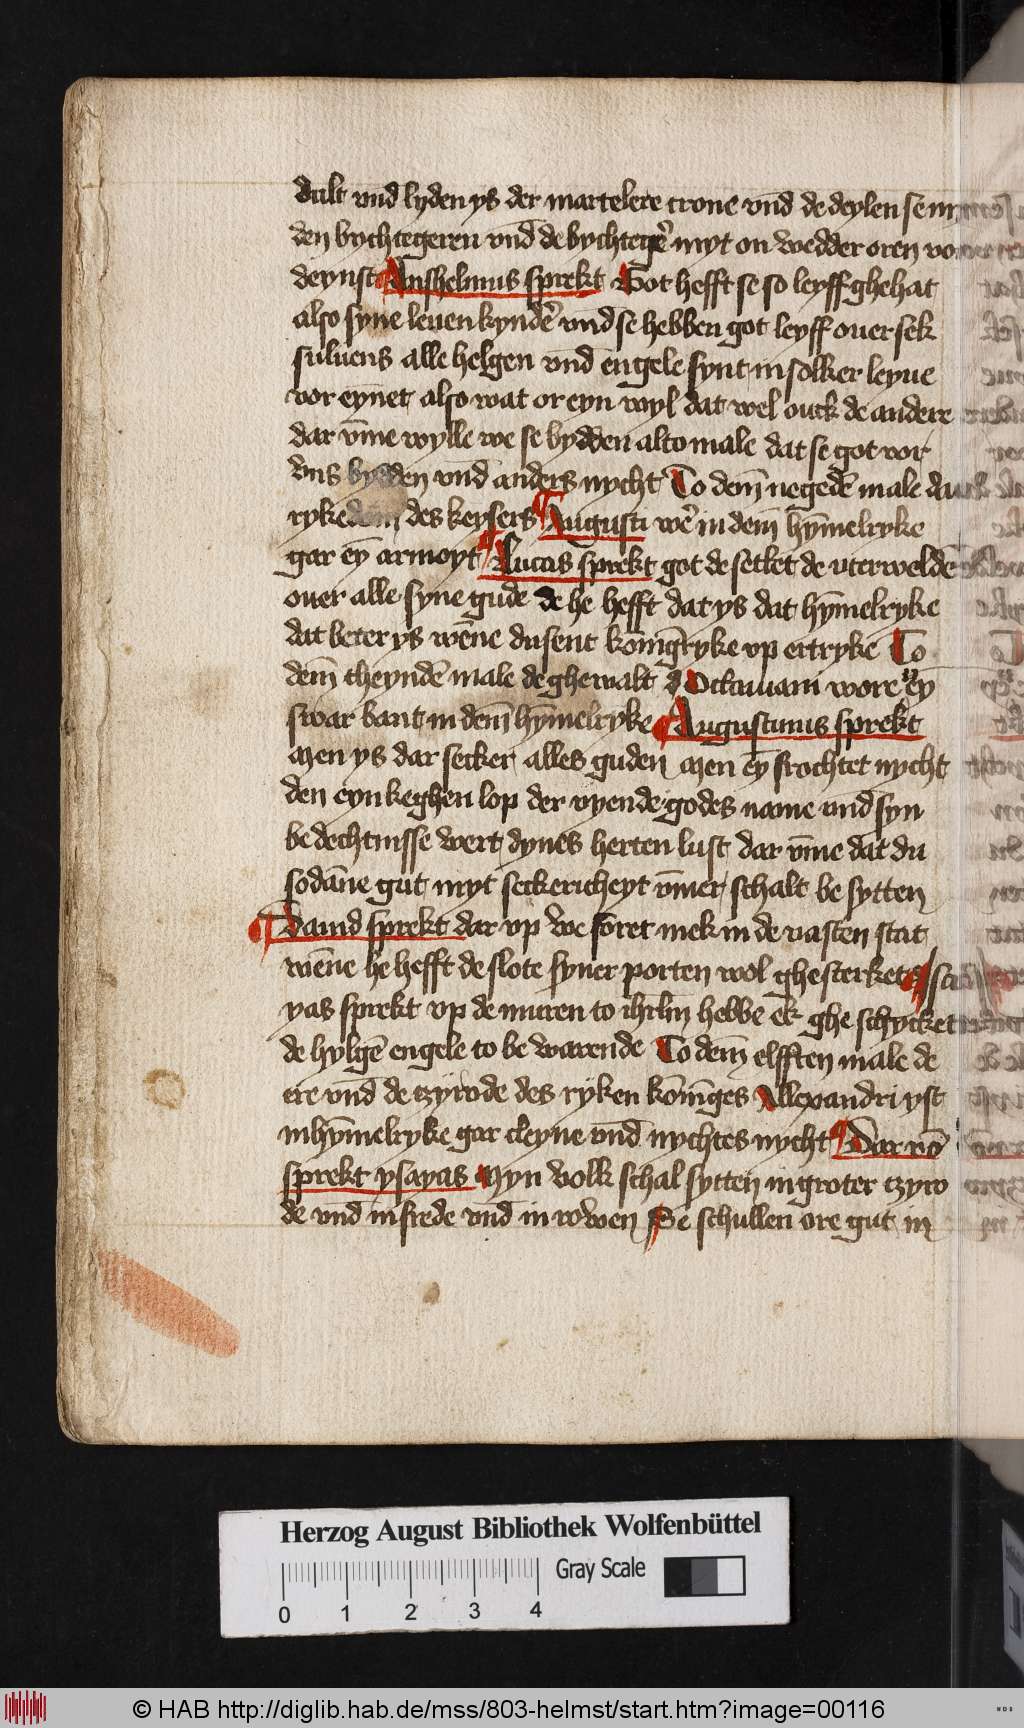 dult vnd lyden ys der martelere crone vnd de deylen se
den bychtegeren vnd de bychteg̉ myt on wedder oren
deynst Anshelmus sprekt Got hefft se so leyff ghehat
also syne leuen kynd̉ vnd se hebben got leyff ouer sek
suluens alle helgen vnd engele synt in solker leyue
vor eynet also wat or eyn wyl dat wel ouck de andere
dar vm̄e wylle we se bydden altomale dat se got vor
vns bydden vnd anders nycht To dem̄ negedē male
rykedom des keysers Augusti wẻ in dem̄ hȳmelryke
gar eȳ armoyt Lucas sprekt got de settet de vterweldē
ouer alle syne gude de he hefft dat ys dat hȳmelryke
dat beter ys wēne dusent kōnīgryke vp ertryke To
dem̄ theyndē male de ghewalt Octauiani wore eȳ
swar bant in dem̄ hȳmelryke Augustinus sprekt
Men ys dar secker alles guden Men eȳ frochtet nycht
den eyn keghen lop der vyende godes name vnd syn
bedechtnisse wert dynes herten lust dar vm̄e dat du
sodāne gut myt seckericheyt vm̄er schalt be sytten
Dauid sprekt dar vp we foret mek in de vasten stat
wēne he hefft de slote syner porten wol ghesterket
yas sprekt vp de muren to ihrlm̄ hebbe ek ghe schycket
de hylgē engele to be warende To dem̄ elfften male de
ere vnd de tzyrode des ryken kōnīges Allexandri yst
in hȳmelryke gar cleyne vnd nychtes nycht Dar vō
sprekt ysayas Myn volk schal sytten in groter tzyro
de vnd in frede vnd in rowen Se schullen ore gut in
Herzog August Bibliothek Wolfenbüttel
Gray Scale
0 1 2 3 4
© HAB http://diglib.hab.de/mss/803-helmst/start.htm?image=00116